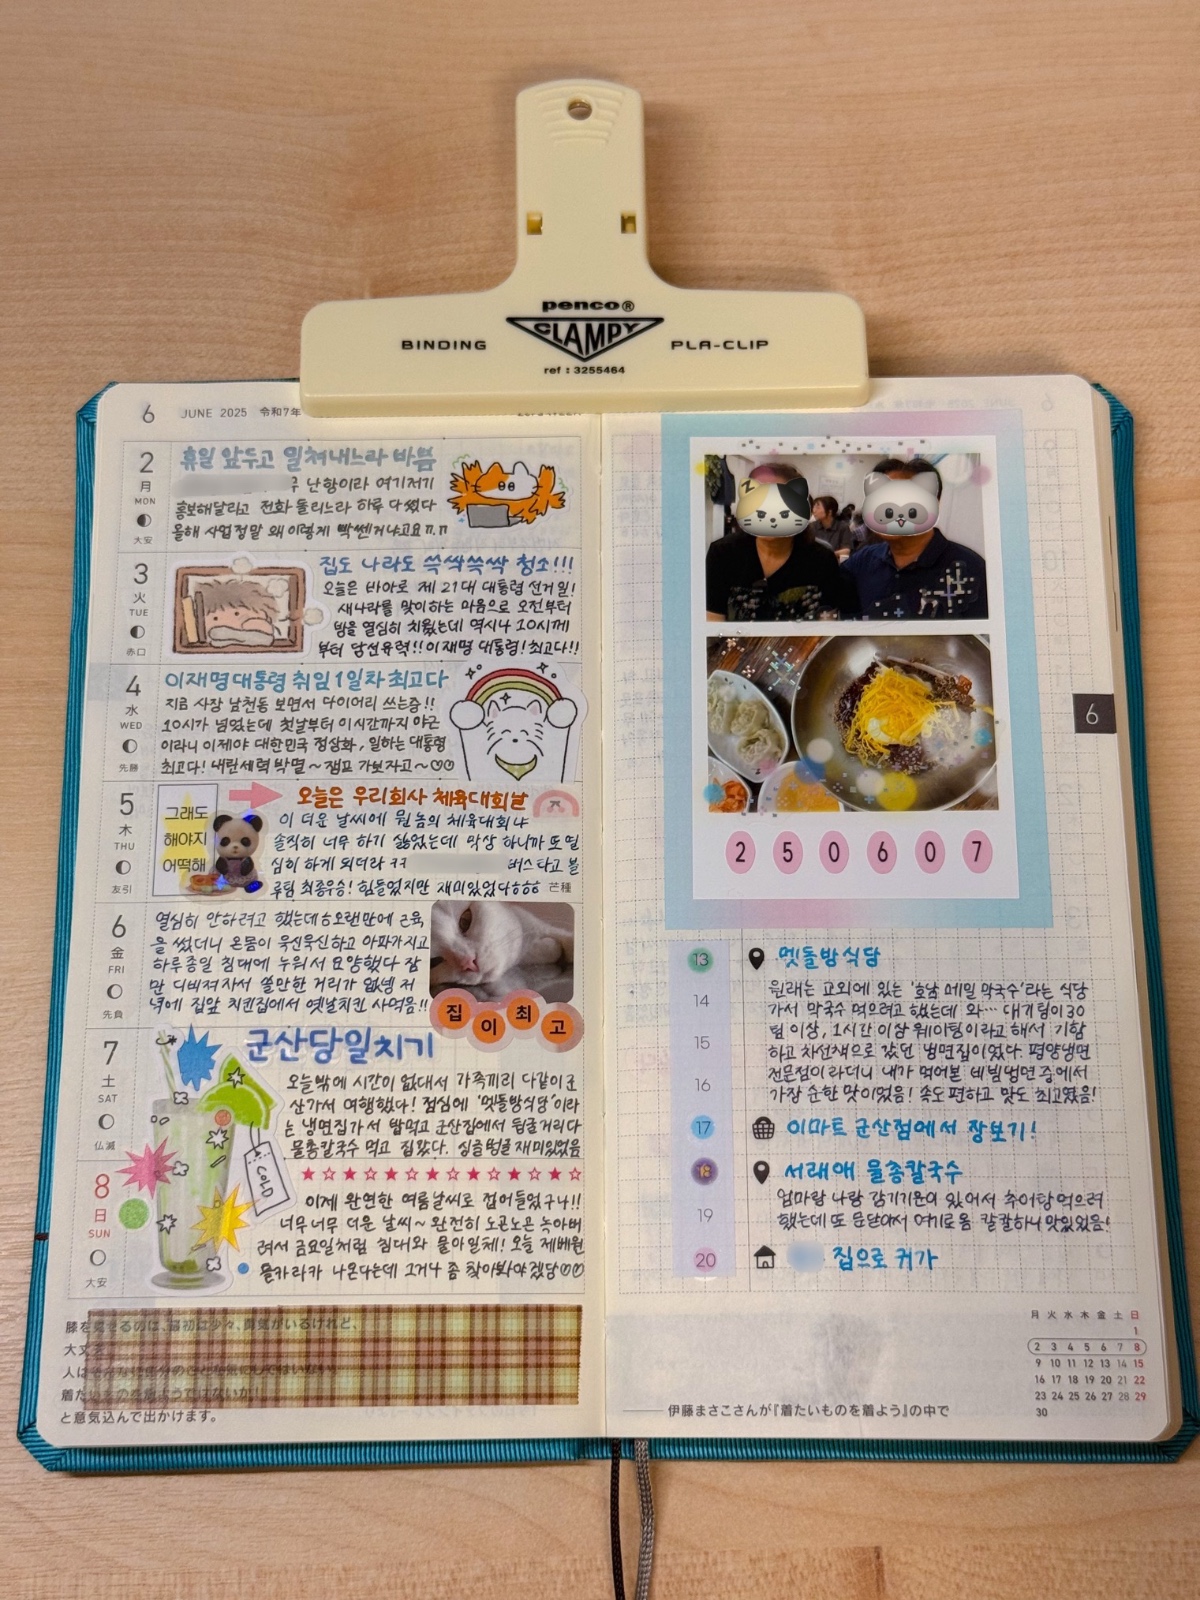 penco®
CLAMPY
BINDING
PLA-CLIP
ref : 3255464
6 JUNE 2025 令和7年
2
月
MON
大安
휴일 앞두고 일쳐내느라 바쁨
난항이라 여기저기
홍보해달라고 전화 돌리느라 하루 다 썼다
올해 사업 정말 왜 이렇게 빡센거냐고요ㅠ.ㅠ
3
火
TUE
赤口
집도 나라도 쓱싹쓱싹 청소!!!
오늘은 바야로 제 21대 대통령 선거일!
새나라를 맞이하는 마음으로 오전부터
방을 열심히 치웠는데 역시나 10시께
부터 당선유력!! 이재명 대통령! 최고다!!
4
水
WED
先勝
이재명 대통령 취임 1일차 최고다
지금 사장 남천동 보면서 다이어리 쓰는중!!
10시가 넘었는데 첫날부터 이시간까지 야근
이라니 이제야 대한민국 정상화, 일하는 대통령
최고다! 내란세력 박멸~ 잼프 가보자고~♡♡
5
木
THU
友引
그래도
해야지
어떡해
오늘은 우리회사 체육대회날
이 더운 날씨에 뭔 놈의 체육대회냐
솔직히 너무 하기 싫었는데 막상 하니까 또 열
심히 하게 되더라 ㅋㅋ 버스타고 블
루팀 최종우승! 힘들었지만 재미있었다ㅎㅎㅎ 芒種
6
金
FRI
先負
열심히 안하려고 했는데 오랜만에 근육
을 썼더니 온몸이 욱신욱신하고 아파가지고
하루종일 침대에 누워서 요양했다 잠
만 디비져자서 쓸만한 거리가 없넹 저
녁에 집앞 치킨집에서 옛날치킨 사먹음!!
집이최고
7
土
SAT
仏滅
군산당일치기
오늘밖에 시간이 없대서 가족끼리 다같이 군
산가서 여행했다! 점심에 '멧돌방식당'이라
는 냉면집가서 밥먹고 군산집에서 뒹굴거리다
물총칼국수 먹고 집왔다. 싱글벙글 재미있었음
COLD
8
日
SUN
大安
이제 완연한 여름날씨로 접어들었구나!!
너무너무 더운 날씨~ 완전히 노곤노곤 녹아버
려서 금요일처럼 침대와 물아일체! 오늘 제베원
몰카라카 나온다는데 그거나 좀 찾아봐야겠당♡♡
膝を見せるのは、最初は少々、勇気がいるけれど、
大丈夫
人は
着たいものを着ようではないか!
と意気込んで出かけます。
250607
6
13
14
15
16
17
18
19
20
멧돌방식당
원래는 교외에 있는 '호남 메밀 막국수'라는 식당
가서 막국수 먹으려고 했는데 와… 대기팀이 30
팀 이상, 1시간 이상 웨이팅이라고 해서 기함
하고 차선책으로 갔던 냉면집이었다. 평양냉면
전문점이라더니 내가 먹어본 비빔냉면 중에서
가장 순한 맛이었음! 속도 편하고 맛도 최고였음!
이마트 군산점에서 장보기!
서래애 물총칼국수
엄마랑 나랑 감기기운이 있어서 추어탕 먹으려
했는데 또 문닫아서 여기로 옴 칼칼하니 맛있었음!
집으로 귀가
伊藤まさこさんが『着たいものを着よう』の中で
月 火 水 木 金 土 日
1
2 3 4 5 6 7 8
9 10 11 12 13 14 15
16 17 18 19 20 21 22
23 24 25 26 27 28 29
30